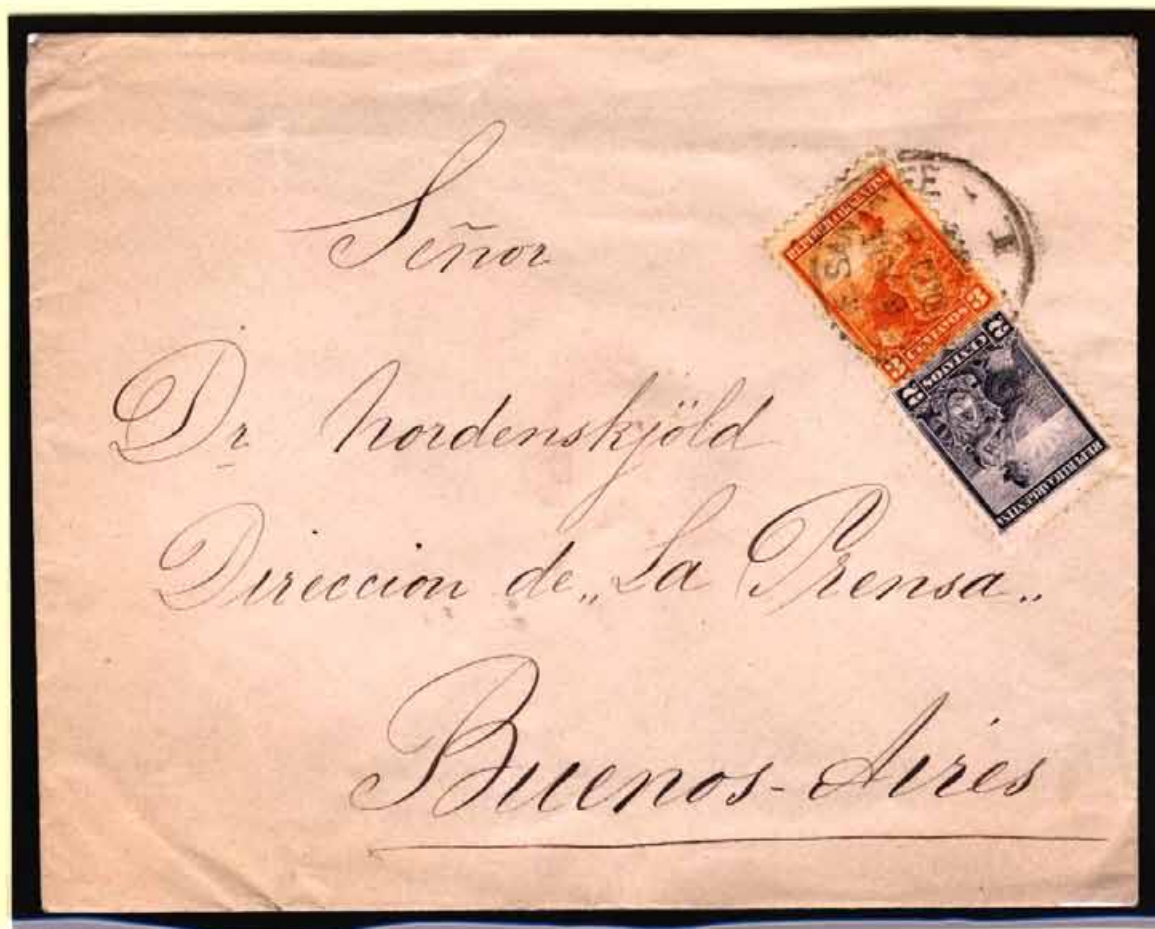 Señor
Dr Nordenskjöld
Direccion de „La Prensa„
Buenos-Aires
REPUBLICA ARGENTINA
3 CENTAVOS 3
2 CENTAVOS 2
REPUBLICA ARGENTINA